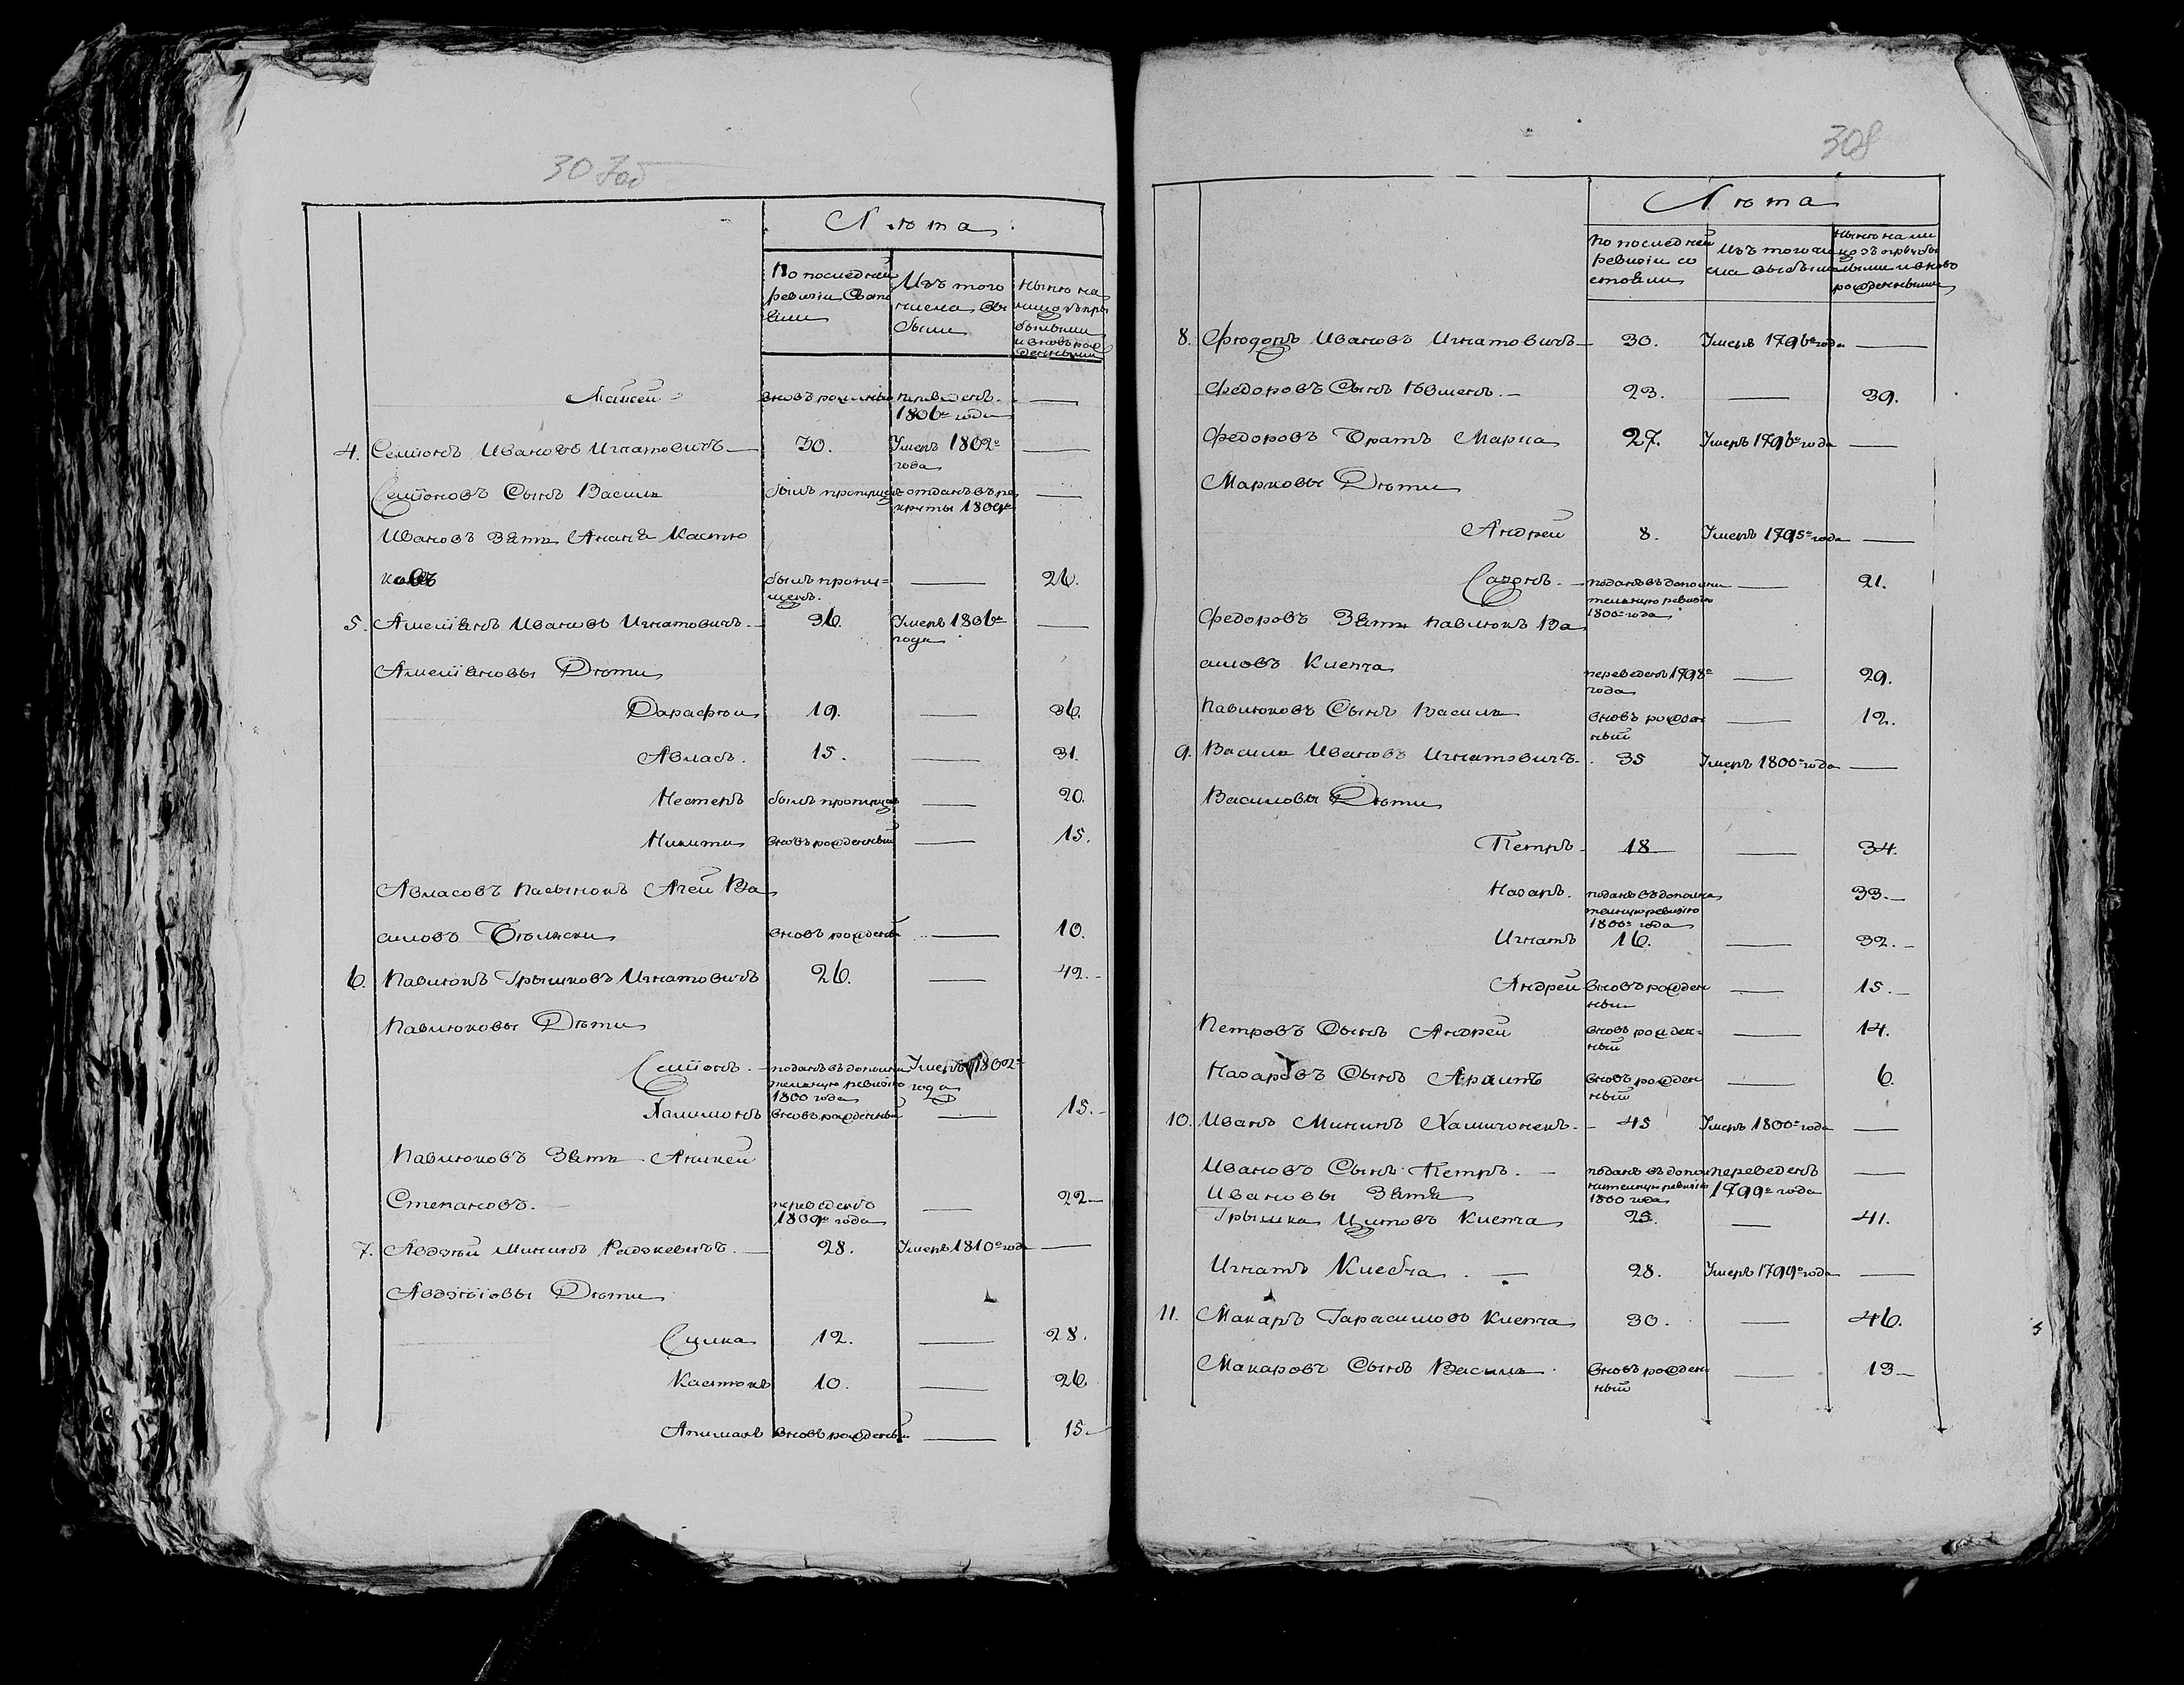 307об
Лѣта
По последней
ревизіи Состо
яли
Изъ того
числа вы
были
Нынѣ на
лицо съ при
былыми
и вновь рож
денными
вновь рожденный переведенъ —
1806го года
4. Семіонъ Ивановъ Игнатовичъ — 30. Умеръ 1802го —
года
Семіоновъ Сынъ Василь былъ пропущен отданъ въ ре —
круты 1804го
Ивановъ Зять Ананя Кастю
ковъ былъ пропу= — 26.
щенъ.
5. Амелiянъ Ивановъ Игнатовичъ — 36. Умеръ 1806го —
года
Амелiяновы Дѣти
Дарафѣй 19. — 36.
Авласъ. 15. — 31.
Нестеръ былъ пропущен — 20.
Никита вновь рожденный — 15.
Авласовъ Пасынокъ Агей Ва
силовъ вновь рожденны — 10.
6. Павлюкъ Грышковъ Игнатовичъ 26. — 42.-
Павлюковы Дѣти
Семіонъ. - поданъ въ дополни Умеръ 1802го
тельную ревизію года
1800 года
Халимонъ вновь рожденный — 15.-
Павлюковъ Зять Аникей
Степановъ. - переведенъ — 22-
1809го года
7. Авдѣй Мининъ Радкевичъ. — 28. Умеръ 1810го года —
Авдѣіовы Дѣти
Сцилка 12. — 28.
Кастюкъ 10. — 26
вновь рожденный — 15-
308
Лѣта
По последней
ревизіи со
стояли
Изъ того чи
сла выбыли
Нынѣ на ли
цо съ прибы
лыми и вновь
рожденными
8. Фіодоръ Ивановъ Игнатовичъ — 30. Умеръ 1796го года —
Федоровъ Сынъ Ювменъ. — 23. — 39.
Федоровъ Братъ Марка 27. Умеръ 1796го года —
Марковы Дѣти
Андрей 8. Умеръ 1795го года —
Сапонъ. - поданъ въ дополни — 21.
тельную ревизію
1800го года
Федоровъ Зять Павлюкъ Ва
силовъ Клепча переведенъ 1798го — 29.
года
Павлюковъ Сынъ Василь вновь рожден — 12.
ный
9. Василь Ивановъ Игнатовичъ. 35 Умеръ 1800го года —
Василовы Дѣти
Петръ - 18 — 34.
Назаръ. поданъ въ дополни 33.-
тельную ревизію
1800го года
Игнатъ 16. — 32.-
Андрей вновь рожден — 15.-
ный
Петровъ Сынъ Андрей вновь рожден= — 14.
ный
Назаровъ Сынъ Архипъ вновь рожден — 6.
ный
10. Иванъ Мининъ Халимонекъ. - 45 Умеръ 1800го года —
Ивановъ Сынъ Петръ. — поданъ въ допол переведенъ —
нительную ревизію 1799го года
1800 года
Ивановы Зятя
Грышка Цитовъ Клепча 25. — 41.
Игнатъ Клебча. — 28. Умеръ 1799го года —
11. Макаръ Гарасимовъ Клепча 30. — 46.
Макаровъ Сынъ Василь вновь рожден — 13-
ный